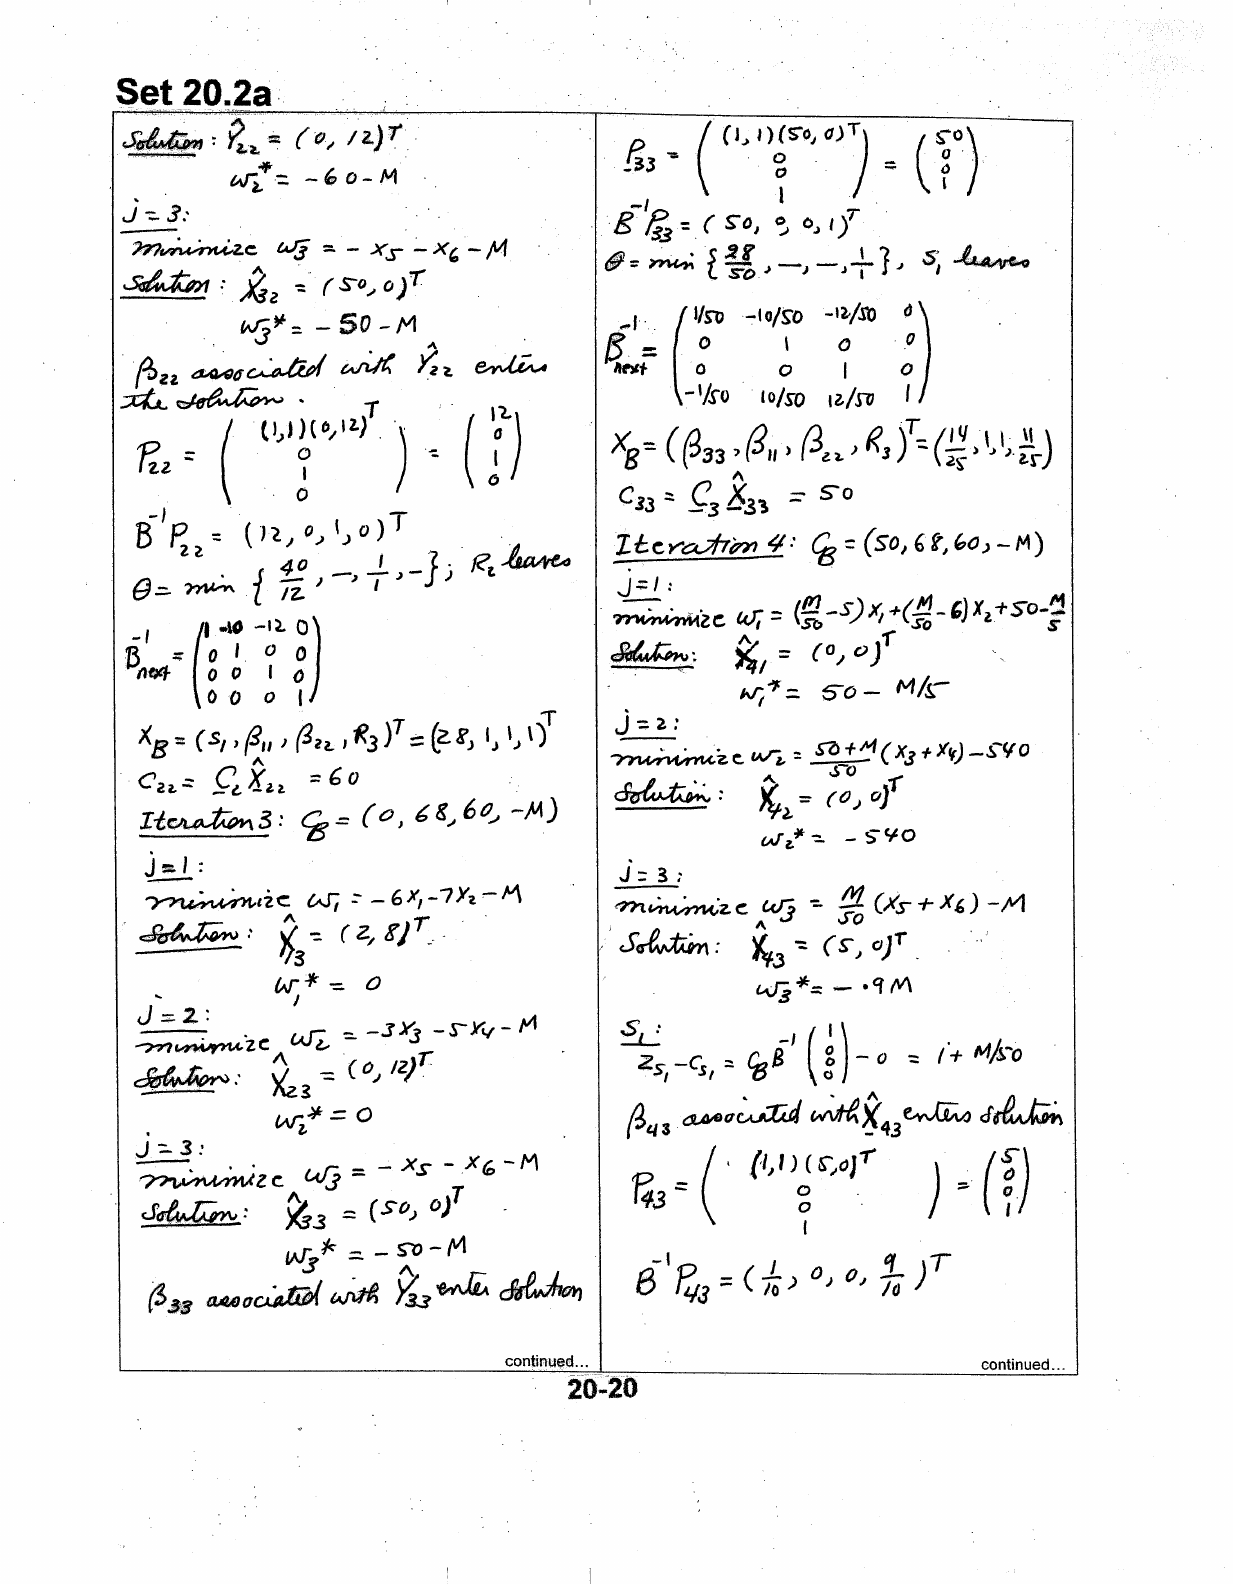 Set 20.2a
Solution: X̂₂₂ = (0, 12)ᵀ
w₂* = -60-M
j = 3:
minimize w₃ = - x₅ - x₆ - M
Solution: X̂₃₂ = (50, 0)ᵀ
w₃* = - 50 - M
β₂₂ associated with X̂₂₂ enters
the solution.
P₂₂ = ( (1,1)(0,12)ᵀ 0 1 0 ) = ( 12 0 1 0 )
B⁻¹P₂₂ = (12, 0, 1, 0)ᵀ
θ = min { 40/12, —, 1/1, - }; R₂ leaves
B⁻¹next = ( 1 -10 -12 0
0 1 0 0
0 0 1 0
0 0 0 1 )
X_B = (S₁, β₁₁, β₂₂, R₃)ᵀ = (28, 1, 1, 1)ᵀ
C₂₂ = C₂ X̂₂₂ = 60
Iteration 3: C_B = (0, 68, 60, -M)
j = 1:
minimize w₁ = - 6x₁ - 7x₂ - M
Solution: X̂₁₃ = (2, 8)ᵀ
w₁* = 0
j = 2:
minimize w₂ = -3x₃ - 5x₄ - M
Solution: X̂₂₃ = (0, 12)ᵀ
w₂* = 0
j = 3:
minimize w₃ = - x₅ - x₆ - M
Solution: X̂₃₃ = (50, 0)ᵀ
w₃* = - 50 - M
β₃₃ associated with X̂₃₃ enter solution
continued...
P₃₃ = ( (1,1)(50, 0)ᵀ 0 0 1 ) = ( 50 0 0 1 )
B⁻¹P₃₃ = (50, 0, 0, 1)ᵀ
θ = min { 28/50, —, —, 1/1 }, S₁ leaves
B⁻¹next = ( 1/50 -10/50 -12/50 0
0 1 0 0
0 0 1 0
-1/50 10/50 12/50 1 )
X_B = (β₃₃, β₁₁, β₂₂, R₃)ᵀ = (14/25, 1, 1, 11/25)
C₃₃ = C₃ X̂₃₃ = 50
Iteration 4: C_B = (50, 68, 60, -M)
j = 1:
minimize w₁ = (M/50 - 5)x₁ + (M/50 - 6)x₂ + 50 - M/5
Solution: X̂₄₁ = (0, 0)ᵀ
w₁* = 50 - M/5
j = 2:
minimize w₂ = 50+M/50 (x₃ + x₄) - 540
Solution: X̂₄₂ = (0, 0)ᵀ
w₂* = - 540
j = 3:
minimize w₃ = M/50 (x₅ + x₆) - M
Solution: X̂₄₃ = (5, 0)ᵀ
w₃* = - .9M
S₁:
z_S₁ - c_S₁ = C_B B⁻¹ ( 1 0 0 0 ) - 0 = 1 + M/50
β₄₃ associated with X̂₄₃ enters solution
P₄₃ = ( (1,1)(5,0)ᵀ 0 0 1 ) = ( 5 0 0 1 )
B⁻¹P₄₃ = (1/10, 0, 0, 9/10)ᵀ
continued...
20-20